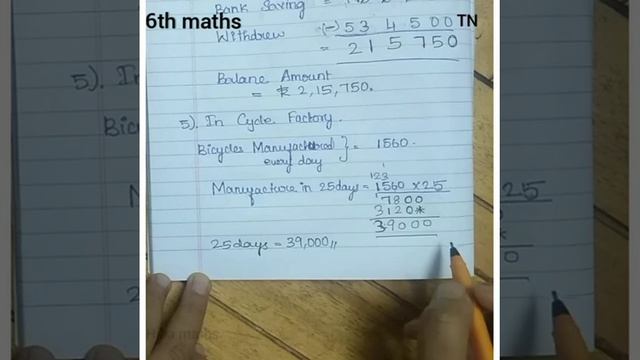 6th maths
TN
Bank Saving =
Withdrew (-) 53 4 5 0 0
= 2 1 5 7 5 0
Balane Amount
= ₹ 2,15,750.
5). In Cycle Factory.
Bicycles Manufactured every day } = 1560.
1
123
Manufacture in 25days = 1560 x 25
7800
3120*
39000
25days = 39,000,,